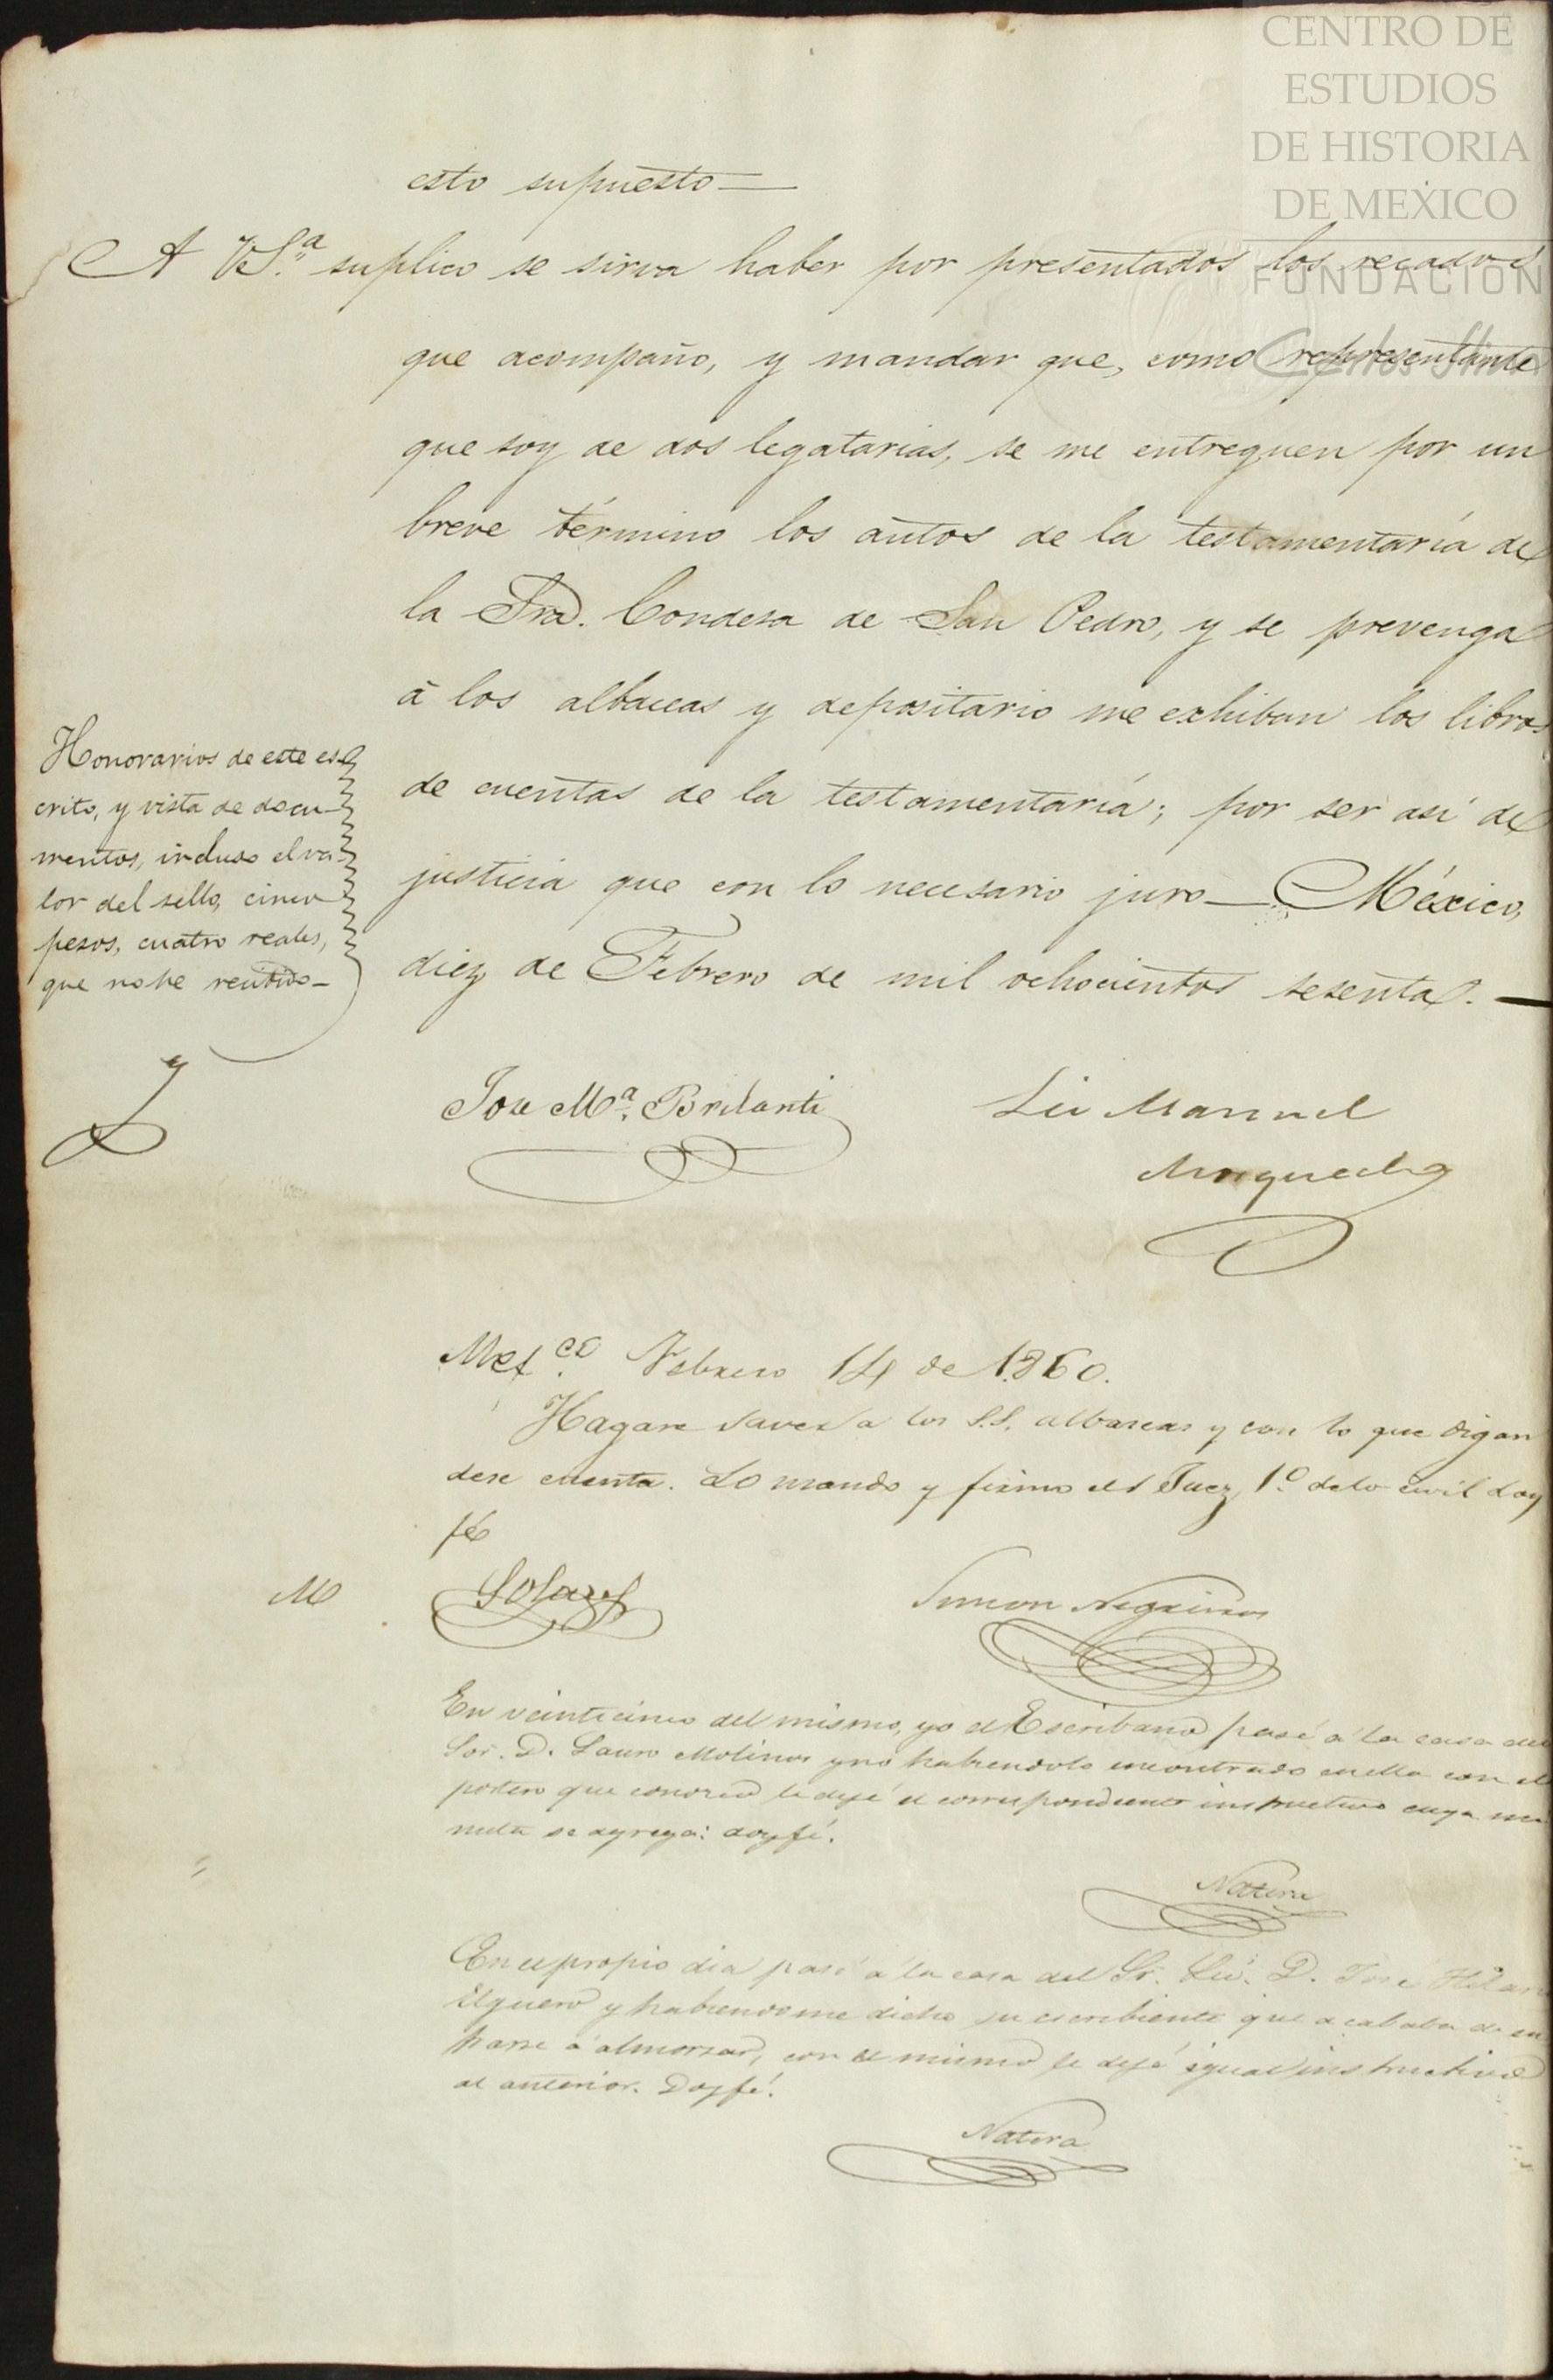 CENTRO DE
ESTUDIOS
DE HISTORIA
DE MEXICO
FUNDACION
Carlos Slim
esto supuesto—
A VS.ª suplico se sirva haber por presentados los recados
que acompaño, y mandar que, como representante
que soy de dos legatarias, se me entreguen por un
breve término los autos de la testamentaría de
la Sra. Condesa de San Pedro, y se prevenga
á los albaceas y depositario me exhiban los libros
de cuentas de la testamentaría; por ser así de
justicia que con lo necesario juro— México,
diez de Febrero de mil ochocientos sesenta.—
Honorarios de este es-
crito, y vista de docu-
mentos, incluso el va-
lor del sello, cinco
pesos, cuatro reales,
que no he recibido—
Jose Mª. Brilanti
Lic Manuel
Mex.co Febrero 14 de 1860.
Hagase saver a los S.S. albaseas y con lo que digan
dese cuenta. Lo mando y firmo el S Juez 1º. de lo civil doy
fe
Solares
Simon Negreiros
En veinticinco del mismo, yo el Escribano pasé á la casa del
Sor. D. Lauro Molinos y no habiendolo encontrado en ella con el
portero que conozco le dejé el correspondiente instructivo cuya mi
nuta se agrega: doy fé.
Natera
En el propio dia pasé á la casa del Sr. Lic. D. José Hilario
Elguero y habiendome dicho su escribiente que acababa de en
trarse á almorzar, con el mismo le dejé igual instructivo
al anterior. Doy fé.
Natera